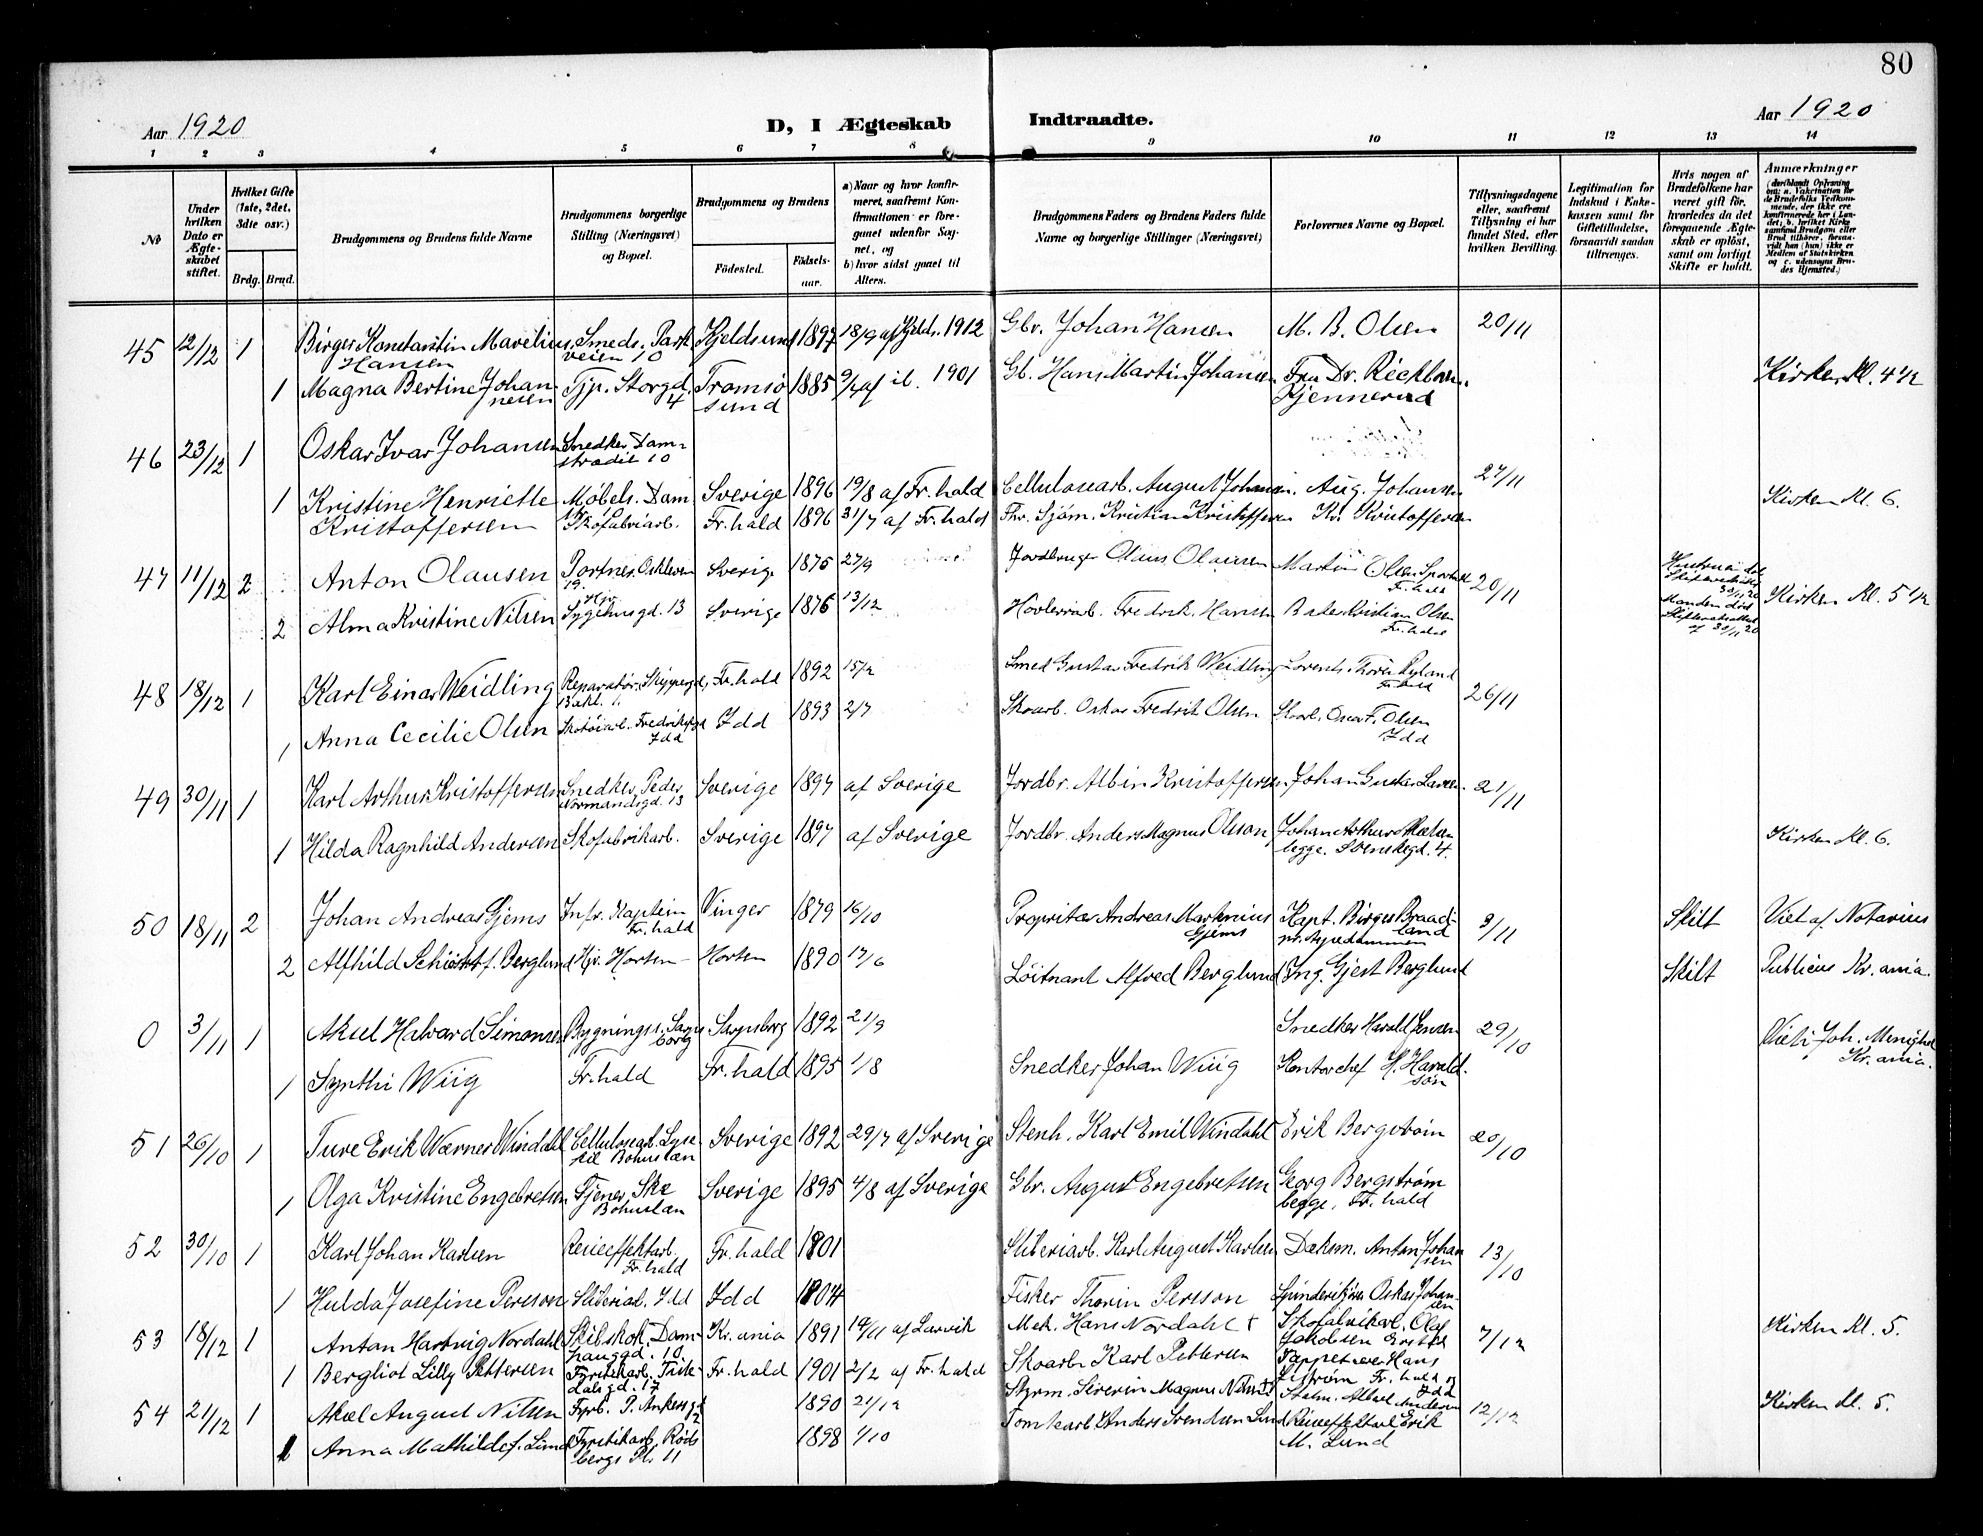 80
Aar 1920
D, I Ægteskab Indtraadte.
Aar 1920
1 2 3 4 5 6 7 8 9 10 11 12 13 14
No
Under hvilken Dato er Ægteskabet stiftet.
Hvilket Gifte (1ste, 2det, 3die osv.)
Brdg. Brud.
Brudgommens og Brudens fulde Navne
Brudgommens borgerlige Stilling (Næringsvei) og Bopæl.
Brudgommens og Brudens
Födested.
Födselsaar.
a) Naar og hvor konfirmeret, saafremt Konfirmationen er foregaaet udenfor Sognet, og
b) hvor sidst gaaet til Alters.
Brudgommens Faders og Brudens Faders fulde Navne og borgerlige Stillinger (Næringsvei)
Forlovernes Navne og Bopæl.
Tillysningsdagene eller, saafremt Tillysning ei har fundet Sted, efter hvilken Bevilling.
Legitimation for Indskud i Enkekassen samt for Giftetilladelse, forsaavidt saadan tiltrænges.
Hvis nogen af Brudefolkene har været gift för, hvorledes da det foregaaende Ægteskab er oplöst, samt om lovligt Skifte er holdt.
Anmærkninger
45 12/12 1 Birger Konstantin Mavelius Smeds. Park Kjeldsund 1897 18/9 af Kjelds. 1912 Gbr. Johan Hansen M. B. Olsen 20/11
Hansen veien 10
1 Magna Bertine Johan Tjp. Storgd. Tromsö 1885 af il. 1901 Gb. Hans Martin Johansen Fru Dr. Kirken Kl. 4 1/2
nesen 4 sund Kjennerud
46 23/12 1 Oskar Ivar Johansen Snedker Dam
stradil 10
1 Kristine Henriette Møbels. Dam Sverige 1896 19/8 af Fr.hald Cellulosearb. August Johansen. Aug. Johansen 27/11 Kirken Kl. 6.
Kristoffersen Skofabriarb. Fr. hald 1896 31/7 af Fr. hald Fhv. Sjöm. Kristian Kristoffersen Kr. Kristoffersen
47 11/12 2 Anton Olausen Portner, Oskleven 19. Sverige 1875 27/9 Jordbruger Olaus Olausen Martin Olsen Fr. hald 20/11 Kirken Kl. 5 1/2
2 Alma Kristine Nilsen Sygehusgd. 13 Sverige 1876 13/12 Hövleriarb. Fredrik Hansen Bader Kristian Olsen Manden död
Fr. hald af 30/11 20
48 18/12 1 Karl Einar Weidling Reparatör. Skippergd. Fr. hald 1892 15/12 Smed Gustav Fredrik Weidling Lorentz Thorer Ryland 26/11
Bakl. 1. Fr. hald
1 Anna Cecilie Olsen Skotöiarb. Fredriksgd Idd 1893 2/7 Skoarb. Oskar Fredrik Olsen Skoarb. Oscar F. Olsen
Idd Idd
49 30/11 1 Karl Arthur Kristoffersen Snedker, Peder Sverige 1897 af Sverige Jordbr. Albin Kristoffersen Johan Gustav Larsen. 21/11
Normandsgd. 13
1 Hilda Ragnhild Andersen Skofabrikarb. Sverige 1897 af Sverige Jordbr. Anders Magnus Olsson Johan Arthur Kirken Kl. 6.
begge. Svenskegd. 4.
50 18/11 2 Johan Andreas Gjems Infr. Kaptein Vinger 1879 16/10 Propritær Andreas Martinius Kapt. Birger Braad 3/11 Skilt Viet af Notarius
Fr. hald Gjems land
2 Alfhild Schiøtt f. Berglund Hjv. Horten Horten 1890 17/6 Löitnant Alfred Berglund Ing. Gjert Berglund Skilt Publicus Kr. ania.
0 3/11 1 Aksel Halvard Simonsen Bygnings. Sarps Sarpsborg 1892 21/9 Snedker Harald Jensen 29/10 Viet i Joh. Menighed
borg Kr. ania.
1 Synthi Wiig Fr. hald Fr. hald 1895 1/8 Snedker Johan Wiig Kontorchef H. Harald
søn
51 26/10 1 Ture Erik Werner Windahl Cellulosearb. Lyse Sverige 1892 29/7 af Sverige Stenh. Karl Emil Windahl Erik Bergström 20/10
kil Bohuslæn
1 Olga Kristine Engebretsen Tjener, Ske Sverige 1895 4/8 af Sverige Gbr. August Engebretsen Georg Bergstrøm
Bohuslæn begge, Fr. hald
52 30/10 1 Karl Johan Karlsen Reiseeffektarb. Fr. hald 1901 Sliberiarb. Karl August Karlsen Dæksm. Anton Johan 13/10
Fr. hald sen
1 Hulda Josefine Persson Sliberiarb. Idd Idd 1904 Fisker Thorin Persson Spinderifors Oskar Johan
sen
53 18/12 1 Anton Hartvig Nordahl Skibskok. Dam Kr. ania 1891 14/11 af Larvik Mek. Hans Nordahl + Skofabrikarb. Olaf 7/12 Kirken Kl. 5.
hauggd. 10. Jakobsen
1 Bergliot Lilly Pettersen Fyrstikarb. Fr. hald 1901 2/2 af Fr. hald Skoarb. Karl Pettersen Hans
dalsgd. 17 Fr. hald
54 21/12 1 Aksel August Nilsen Fyrb. P. Ankersgt 1890 21/12 Styrm. Severin Magnus Nilsen Aksel Andersen 12/12 Kirken Kl. 5.
2
1 Anna Mathilde f. Lund Fyrstikarb. Röds 1898 1/10 Tomtearb. Anders Svendsen Lund Reiseeffektarb. Erik
bergs Pl. 11 M. Lund